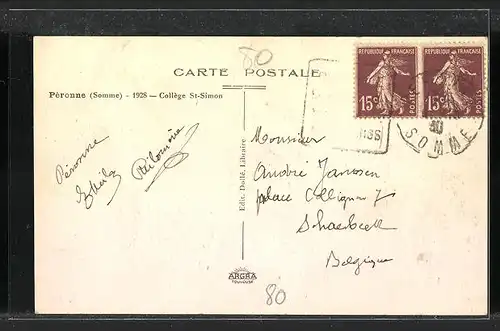 80
CARTE POSTALE
Péronne (Somme) - 1928 - Collège St-Simon
REPUBLIQUE FRANÇAISE
15c
POSTES
REPUBLIQUE FRANÇAISE
15c
POSTES
SOMME
Péronne
Monsieur
André Janssen
place Colignon 7
Schaerbeek
Belgique
Edit. Dollé, Libraire
ARGRA
80